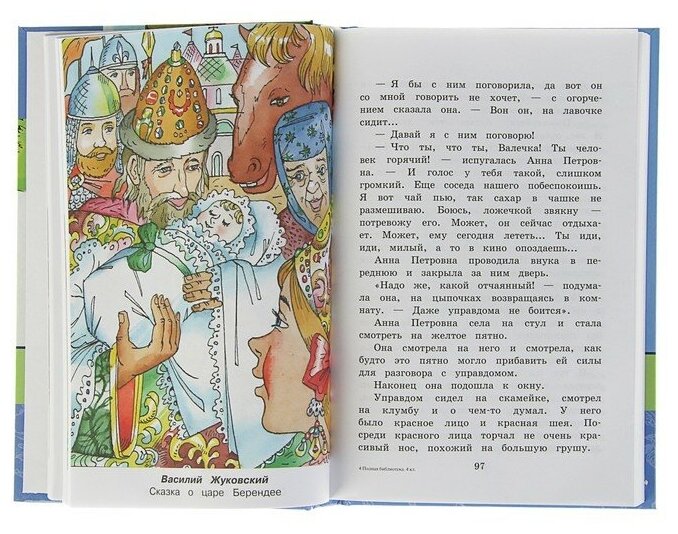 Василий Жуковский
Сказка о царе Берендее
— Я бы с ним поговорила, да вот он
со мной говорить не хочет, — с огорче-
нием сказала она. — Вон он, на лавочке
сидит...
— Давай я с ним поговорю!
— Что ты, что ты, Валечка! Ты чело-
век горячий! — испугалась Анна Петров-
на. — И голос у тебя такой, слишком
громкий. Еще соседа нашего побеспокоишь.
Я вот чай пью, так сахар в чашке не
размешиваю. Боюсь, ложечкой звякну —
потревожу его. Может, он сейчас отдыха-
ет. Может, ему сегодня лететь... Ты иди,
иди, милый, а то в кино опоздаешь...
Анна Петровна проводила внука в пе-
реднюю и закрыла за ним дверь.
«Надо же, какой отчаянный! — подума-
ла она, на цыпочках возвращаясь в ком-
нату. — Даже управдома не боится».
Анна Петровна села на стул и стала
смотреть на желтое пятно.
Она смотрела на него и смотрела, как
будто это пятно могло прибавить ей силы
для разговора с управдомом.
Наконец она подошла к окну.
Управдом сидел на скамейке, смотрел
на клумбу и о чем-то думал. У него
было красное лицо и красная шея. По-
среди красного лица торчал не очень кра-
сивый нос, похожий на большую грушу.
4 Полная библиотека. 4 кл.
97